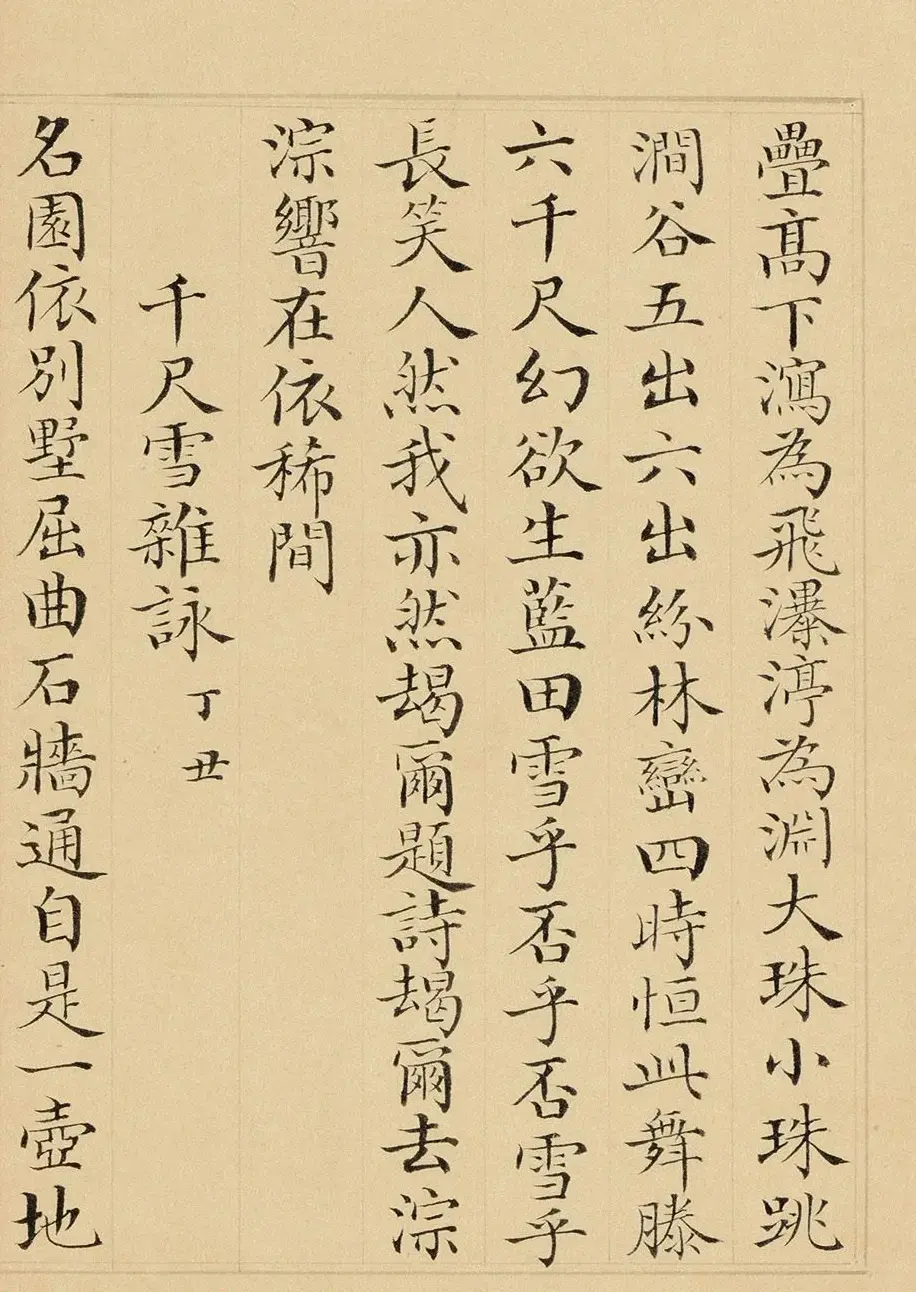 疊髙下瀉為飛瀑渟為淵大珠小珠跳
澗谷五出六出紛林巒四時恒此舞滕
六千尺幻欲生藍田雪乎否乎否雪乎
長笑人然我亦然朅爾題詩朅爾去淙
淙響在依稀間
千尺雪雜詠 丁丑
名園依別墅屈曲石牆通自是一壺地